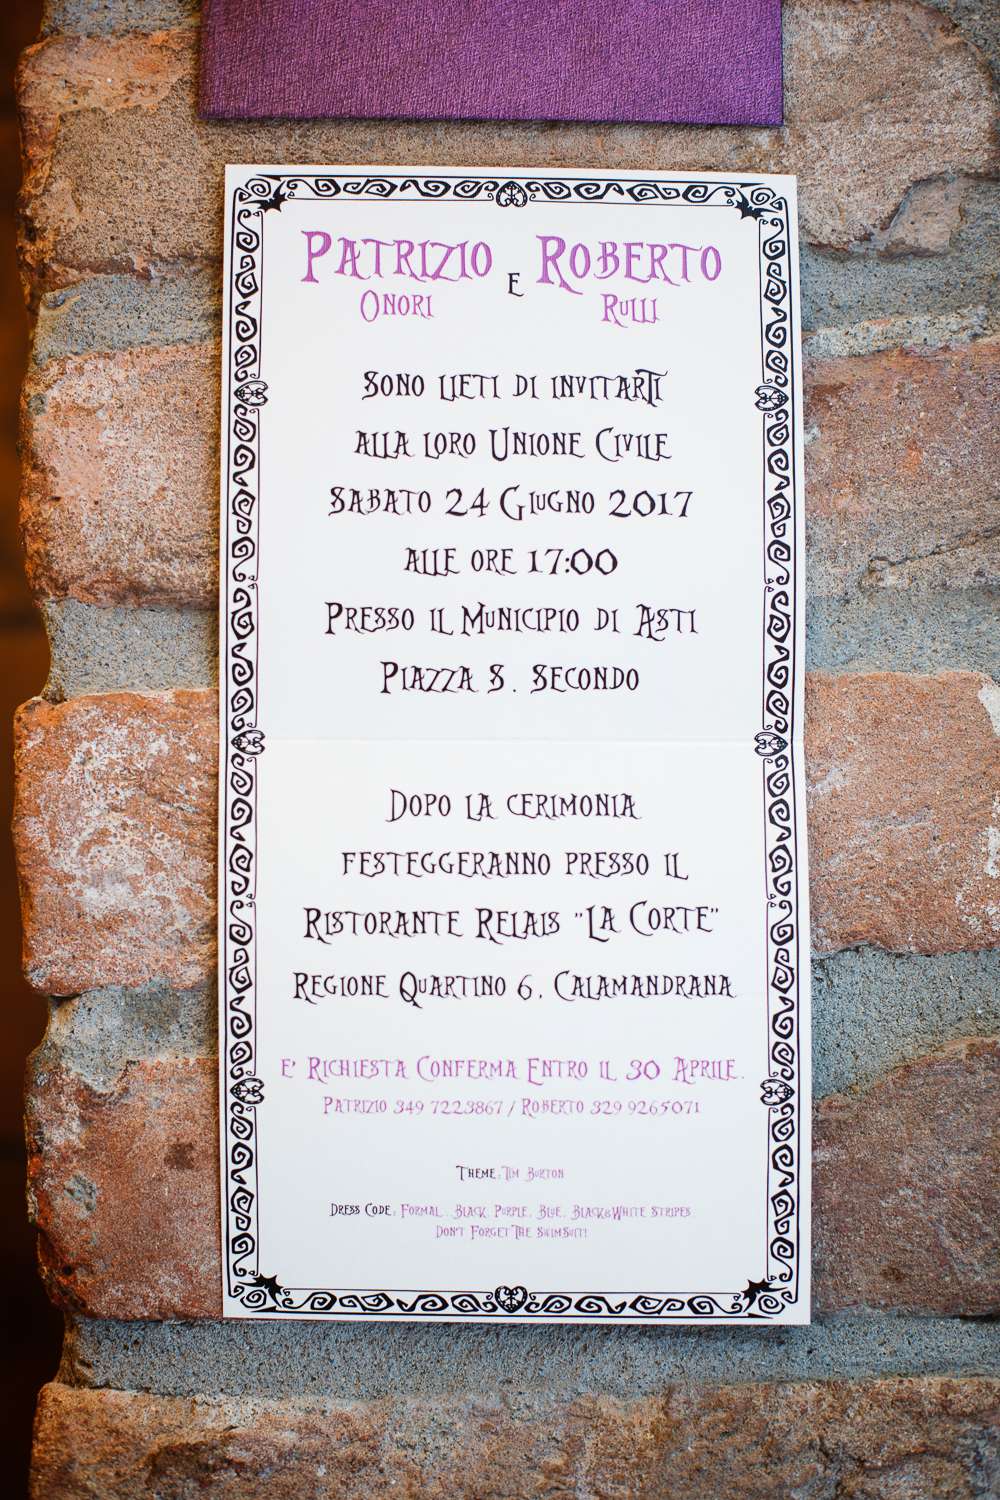 Patrizio e Roberto
Onori Rulli
Sono lieti di invitarti
alla loro Unione Civile
Sabato 24 Giugno 2017
alle ore 17:00
Presso il Municipio di Asti
Piazza S. Secondo
Dopo la cerimonia
festeggeranno presso il
Ristorante Relais "La Corte"
Regione Quartino 6, Calamandrana
E' Richiesta Conferma Entro il 30 Aprile.
Patrizio 349 7223867 / Roberto 329 9265071
Theme: Tim Burton
Dress Code: Formal. Black, Purple, Blue, Black&White Stripes.
Don't Forget The Swimsuit!